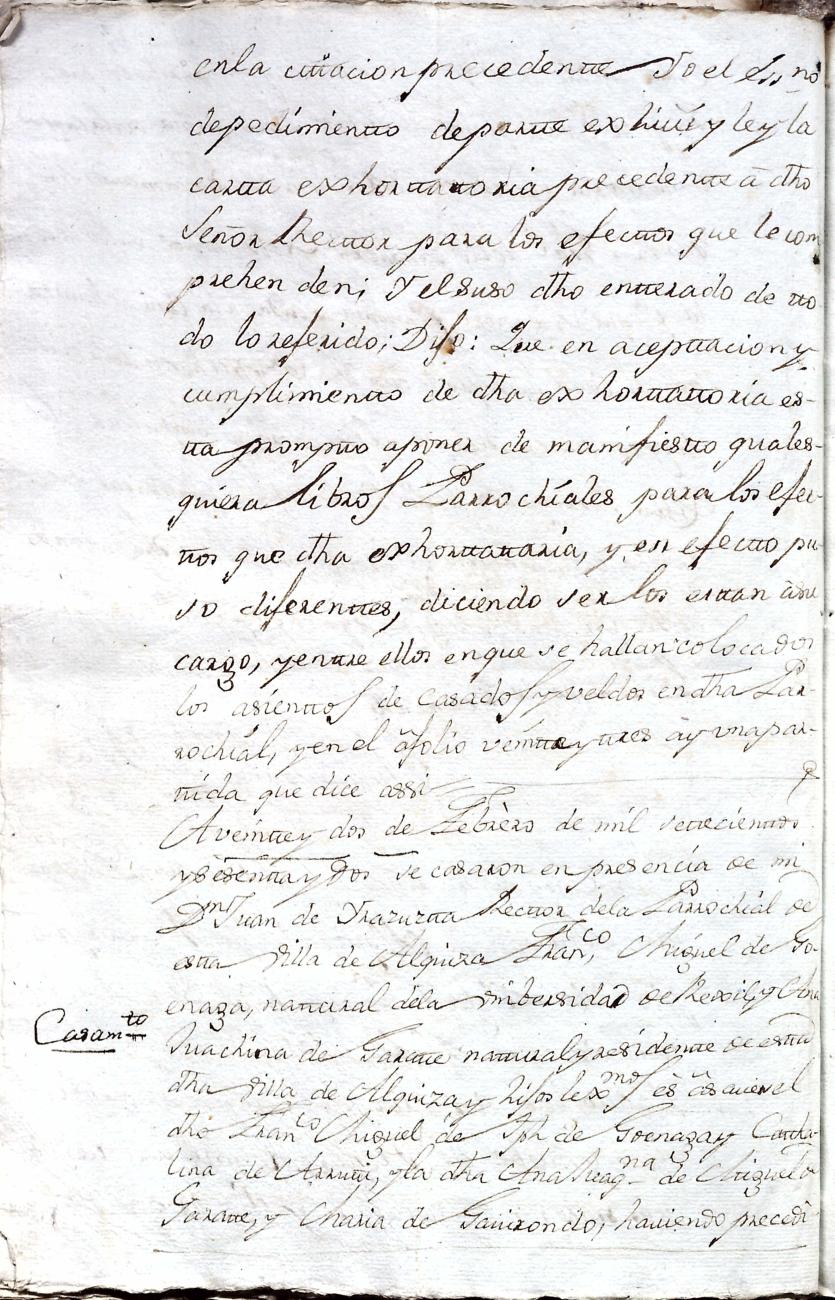 enla cittacion precedentte Yo el essno
depedimientto departte exhiví y ley la
cartta exhorttattoria precedentte â dho
Señor Recttor para los efecttos que le com
prehenden; Y elsuso dho entterado de tto
do lo referido; Dijo: Que en aceptacion y
cumplimientto de dha exhorttattoria es-
tta prompto aponer de manifiestto quales-
quiera libros Parrochiales para los efec-
ttos que dha exhorttattaria, y en efectto pu-
so diferenttes, diciendo ser los esttan âsu
cargo, yenttre ellos enque se hallan colocados
los asienttos de casados y veldos endha Par-
rochial, yen el âfolio veintteyttres ay vnapar-
ttida que dice assi
A veintte y dos de Febrero de mil settecienttos
ysesentta y dos se casaron en presencia de mi
Dn Juan de Yrazuztta Recttor dela Parrochial de
estta Villa de Alquiza Franco, Miguel de Go-
enaga, natural dela Vnibersidad de Rexil, y Ana
Casamtto Juachina de Garatte natturalyresidentte de estta
dha Villa de Alquiza y hijos lexmos es âsaver el
dho Franco Miguel de Jph de Goenaga y Catha-
lina de Arrutti, yla dha Ana Juaqna de Miguel de
Garatte, y Maria de Gavirondo, haviendo precedi